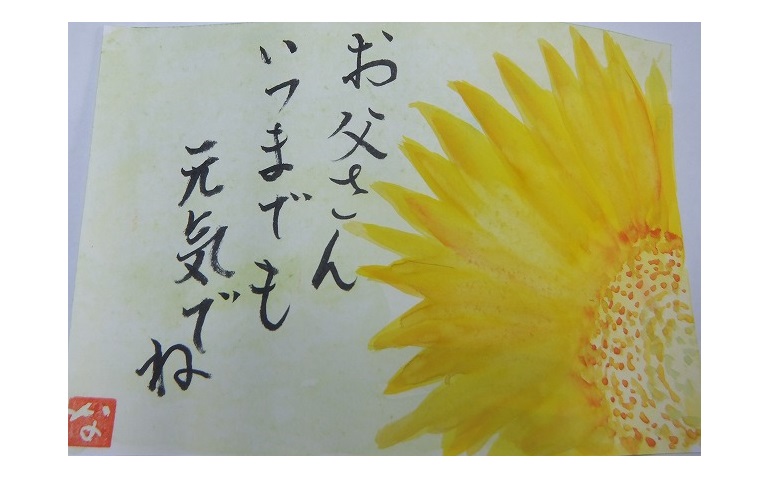 お父さん
いつまでも
元気でね
な